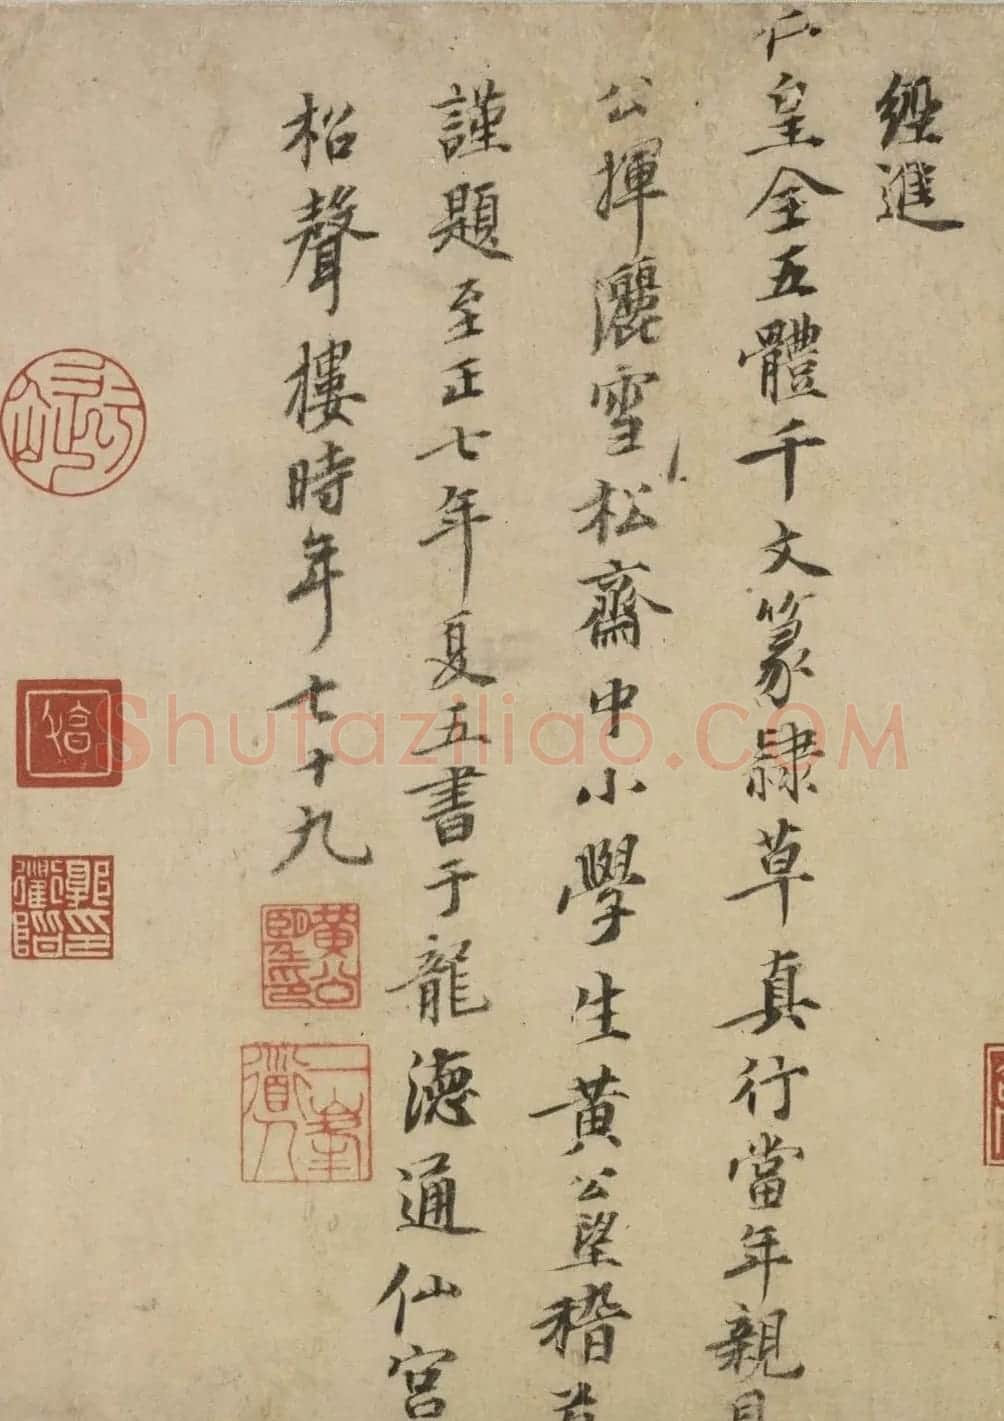 經進
仁皇全五體千文篆隸草真行當年親見
公揮灑雪松齋中小學生黃公望稽首
謹題至正七年夏五書于龍德通仙宮
松聲樓時年七十九
黃公望印
一峯道人
Shufaziliao.COM